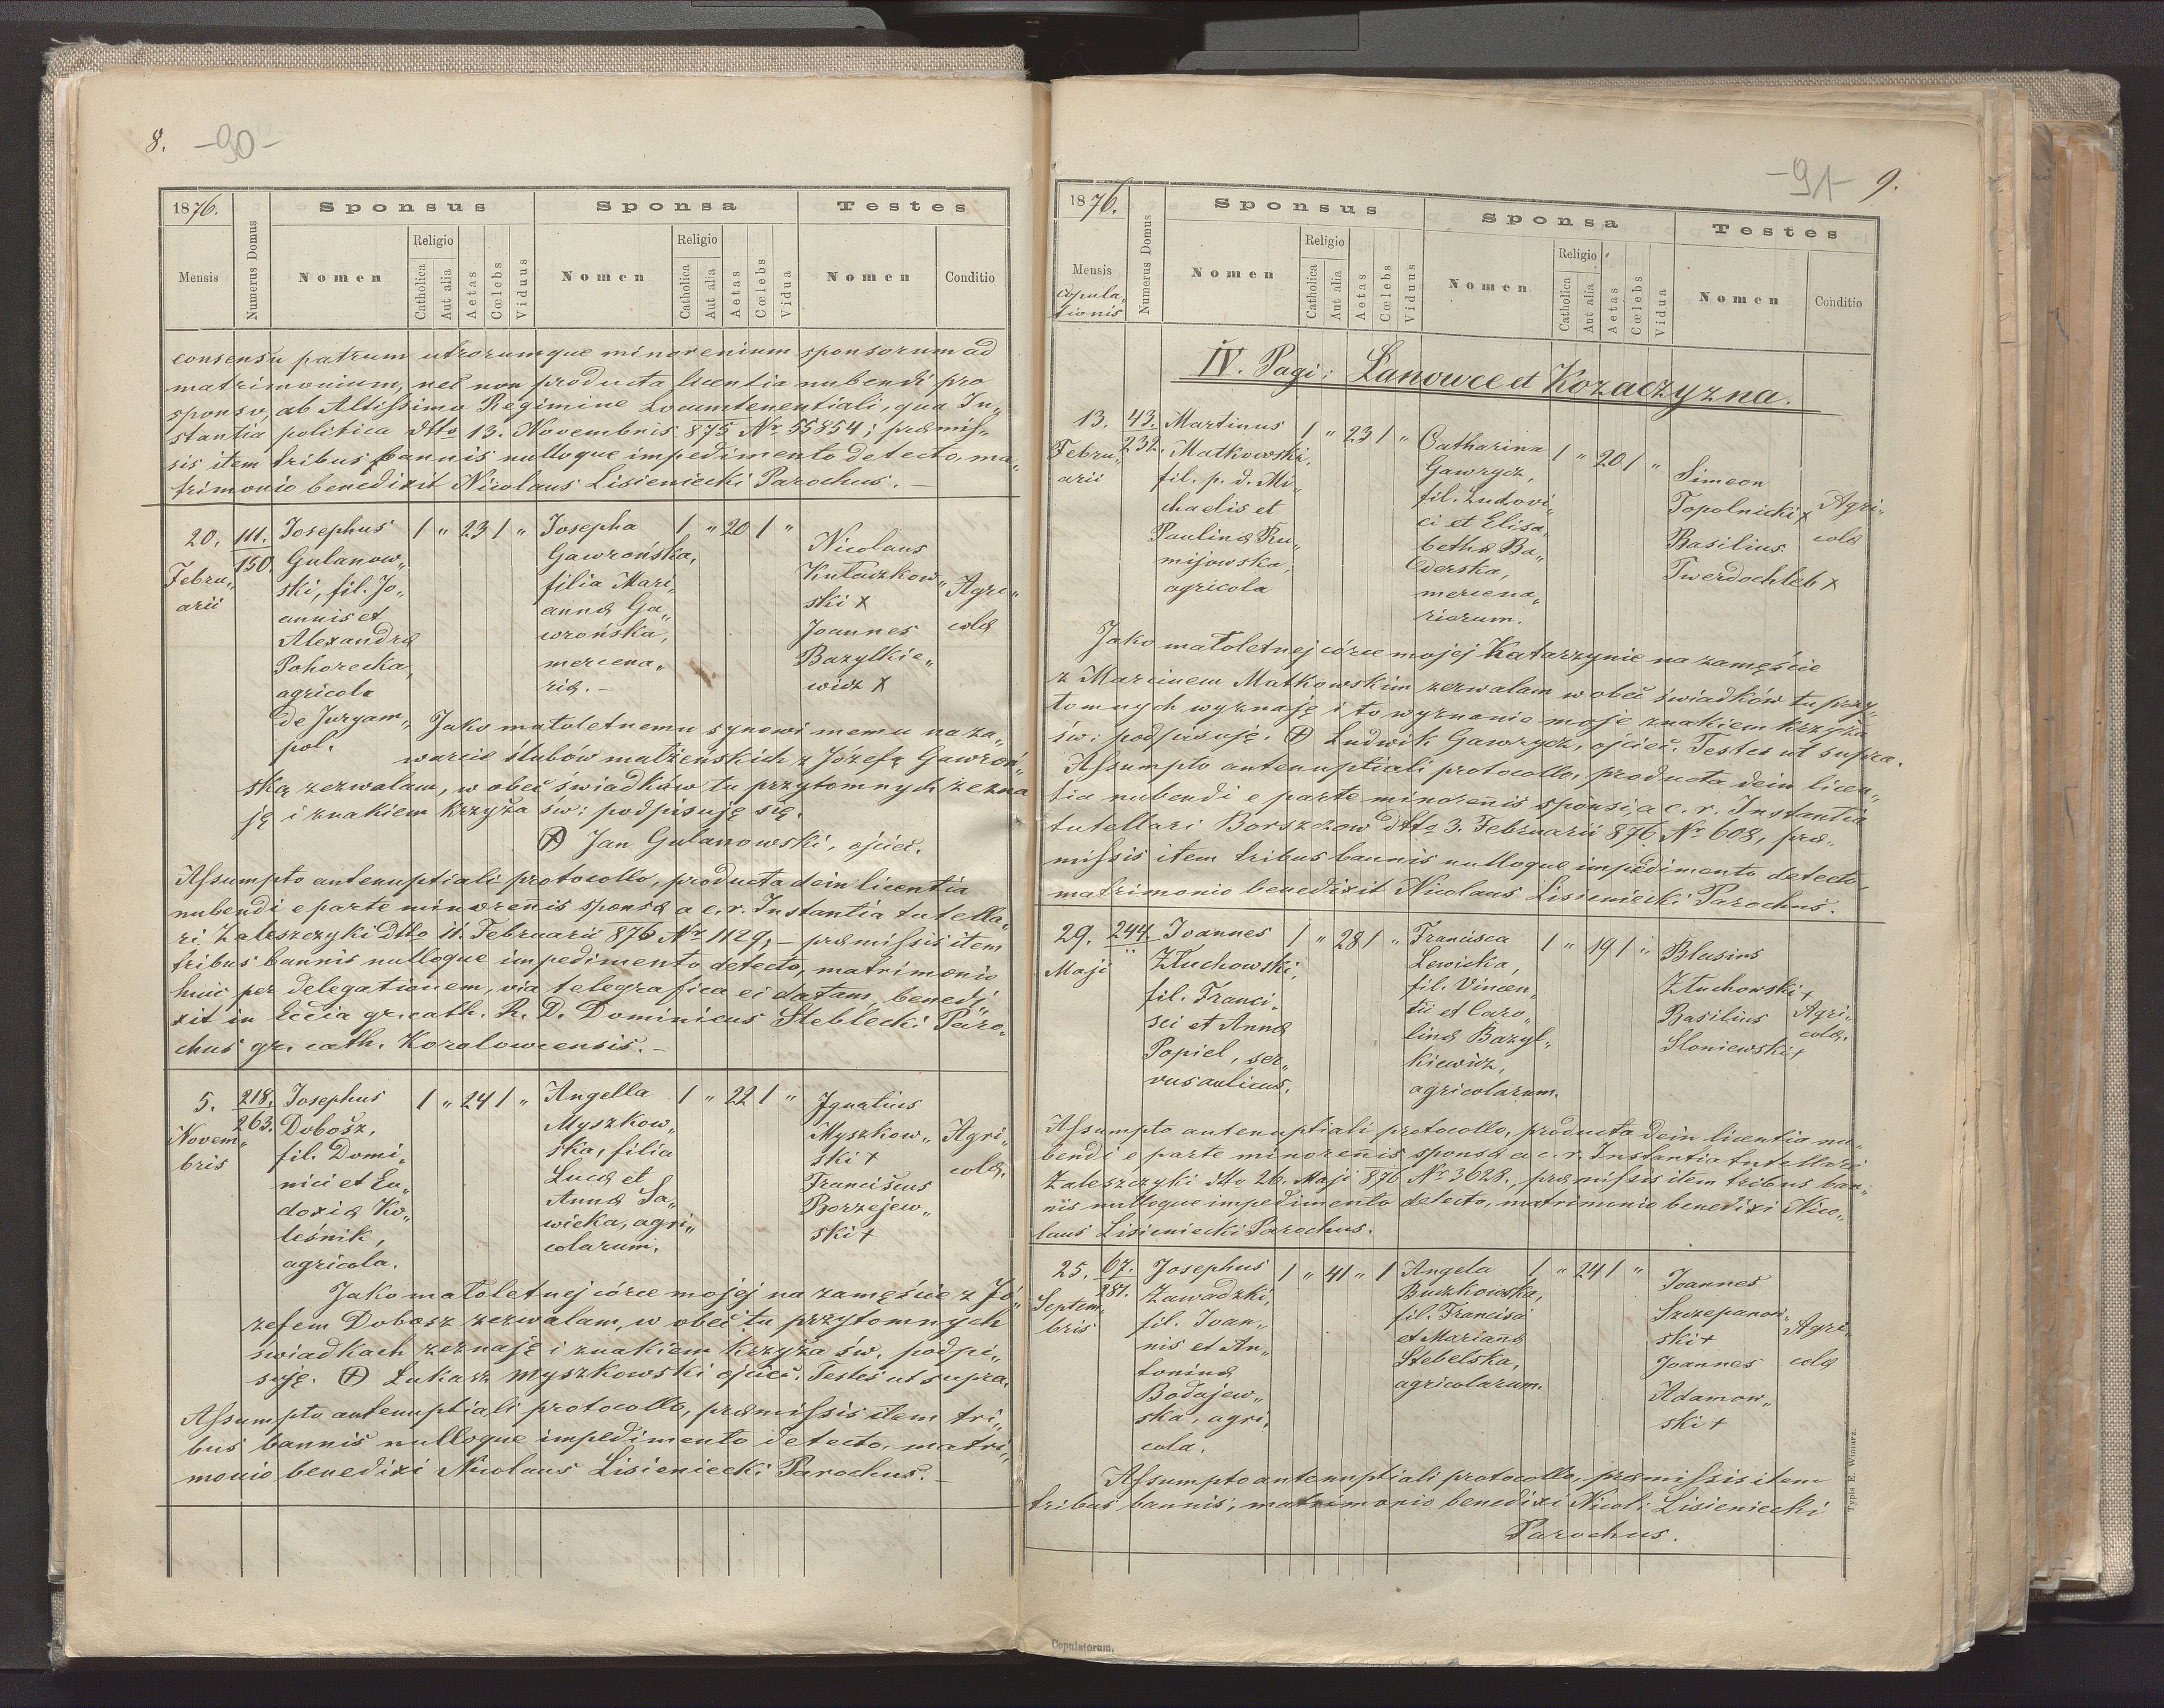 8. -90-
1876.
Mensis
Numerus Domus
Sponsus
Sponsa
Testes
Nomen
Religio
Catholica
Aut alia
Aetas
Cœlebs
Viduus
Nomen
Religio
Catholica
Aut alia
Aetas
Cœlebs
Vidua
Nomen
Conditio
consensu patrum utrorumque minorenium sponsorum ad
matrimonium, nec non producta licentia nubendi pro
sponso, ab Altissimo Regimine Locumtenentiali, qua In„
stantia politica dtto 13. Novembris 875 Nr. 55854; præmis„
sis item tribus bannis nulloque impedimento detecto, ma„
trimonio benedixit Nicolaus Lisieniecki Parochus. —
20.
Febru„
arii
111.
150.
Josephus
Gulanow„
ski, fil. Jo„
annis et
Alexandra
Pohorecka,
agricola
de Juryam„
pol.
1 " 23 1 "
Josepha
Gawrońska,
filia Mari„
annæ Ga„
wrońska,
mercena„
riæ. —
1 " 20 1 "
Nicolaus
Kułaczkow„
ski x
Joannes
Bazylkie„
wicz x
Agri„
colæ
Jako małoletnemu synowi memu na za„
warcie ślubów małżeńskich z Józefą Gawroń„
ską zezwalam, w obec świadków tu przytomnych zezna
ję i znakiem krzyża św: podpisuję się.
(+) Jan Gulanowski, ojciec.
Assumpto antenuptiali protocollo, producta dein licentia
nubendi e parte minorenis sponsæ a c. r. Instantia tutella„
ri Zaleszczyki dtto 11. Februarii 876 Nr. 1129, — præmissis item
tribus bannis nulloque impedimento detecto, matrimonio
huic per delegationem, via telegrafica ei datam, benedi„
xit in Ecclia gr. cath. R. D. Dominicus Steblecki Paro„
chus gr. cath. Korolowcensis. —
5.
Novem„
bris
218.
263.
Josephus
Dobosz,
fil. Domi„
nici et Eu„
doxiæ Ko„
leśnik,
agricola.
1 " 24 1 "
Angella
Myszkow„
ska, filia
Lucæ et
Annæ Sa„
wicka, agri„
colarum.
1 " 22 1 "
Ignatius
Myszkow„
ski +
Franciscus
Borzejew„
ski +
Agri„
colæ.
Jako małoletnej córce mojej na zamęście z Jó„
zefem Dobosz zezwalam, w obec tu przytomnych
świadkach zeznaję i znakiem krzyża św. podpi„
suję. (+) Łukasz Myszkowski ojciec. Testes ut supra.
Assumpto antenuptiali protocollo, præmissis item tri„
bus bannis nulloque impedimento detecto, matri„
monio benedixi Nicolaus Lisieniecki Parochus. —
-91- 9.
1876.
Mensis
Copula„
tionis
Numerus Domus
Sponsus
Sponsa
Testes
Nomen
Religio
Catholica
Aut alia
Aetas
Cœlebs
Viduus
Nomen
Religio
Catholica
Aut alia
Aetas
Cœlebs
Vidua
Nomen
Conditio
IV. Pagi: Lanowce et Kozaczyzna.
13.
Febru„
arii
43.
232.
Martinus
Matkowski,
fil. p. d. Mi„
chaelis et
Paulinæ Ru„
mijowska,
agricola
1 " 23 1 "
Catharina
Gawrycz,
fil. Ludovi„
ci et Elisa„
bethæ Ba„
derska,
mercena„
riorum.
1 " 20 1 "
Simeon
Topolnicki x
Basilius
Twerdochleb x
Agri„
colæ
Jako małoletnej córce mojej Katarzynie na zamęście
z Marcinem Matkowskim zezwalam w obec świadków tu przy„
tomnych wyznaję i to wyznanie moje znakiem krzyża
św: podpisuję. (+) Ludwik Gawrycz, ojciec. Testes ut supra.
Assumpto antenuptiali protocollo, producta dein licen„
tia nubendi e parte minorenis sponsi, a c. r. Instantia
tutellari Borszczow dtto 3. Februarii 876 Nr. 608, præ„
missis item tribus bannis nulloque impedimento detecto,
matrimonio benedixit Nicolaus Lisieniecki Parochus.
29.
Maji
244.
"
Joannes
Złuchowski,
fil. Franci„
sci et Annæ
Popiel, ser„
vus aulicus.
1 " 28 1 "
Francisca
Lewicka,
fil. Vincen„
tii et Caro„
linæ Bazyl„
kiewicz,
agricolarum.
1 " 19 1 "
Blasius
Złuchowski +
Basilius
Sloniewski +
Agri„
colæ.
Assumpto antenuptiali protocollo, producta dein licentia nu„
bendi e parte minorenis sponsæ a c. r. Instantia tutellari
Zaleszczyki dtto 26. Maji 876 Nr. 3628., præmissis item tribus ban„
nis nulloque impedimento detecto, matrimonio benedixi Nico„
laus Lisieniecki Parochus.
25.
Septem„
bris
67.
281.
Josephus
Zawadzki,
fil. Joan„
nis et An„
toninæ
Bodajew„
ska, agri„
cola.
1 " 41 " 1
Angela
Buczkowska,
fil. Francisci
et Mariannæ
Stebelska,
agricolarum.
1 " 24 1 "
Joannes
Szczepanow„
ski +
Joannes
Adamow„
ski +
Agri„
colæ
Assumpto antenuptiali protocollo, præmissis item
tribus bannis, matrimonio benedixi Nicol: Lisieniecki
Parochus.
Typis E. Winiarz.
Copulatorum.